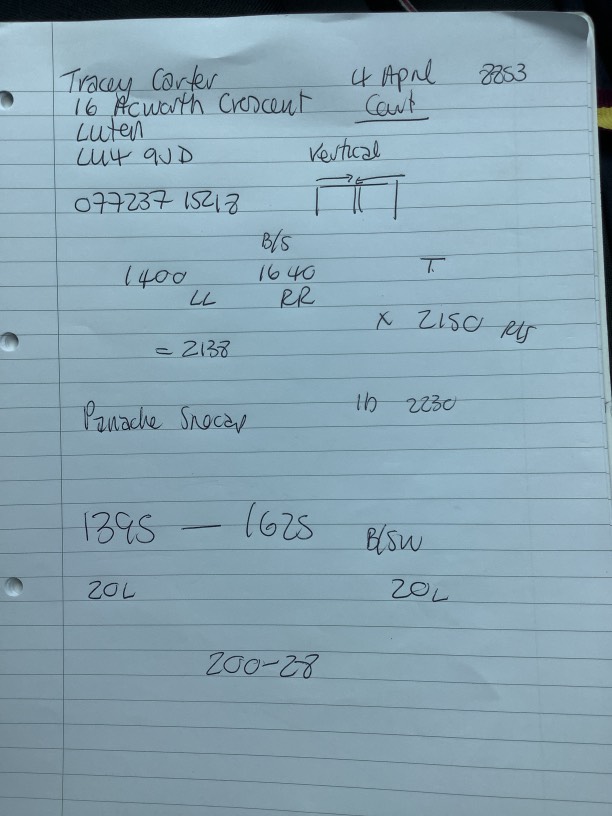 Tracey Carter 4 April 8853
16 Acworth Crescent Cawt
Luten
LU4 9JD Vertical
077237 15213
B/S
1400 1640 T.
LL RR
x 2150
= 2138
Panache 1b 2230
1395 — 1625 B/SW
20L 20L
200-28